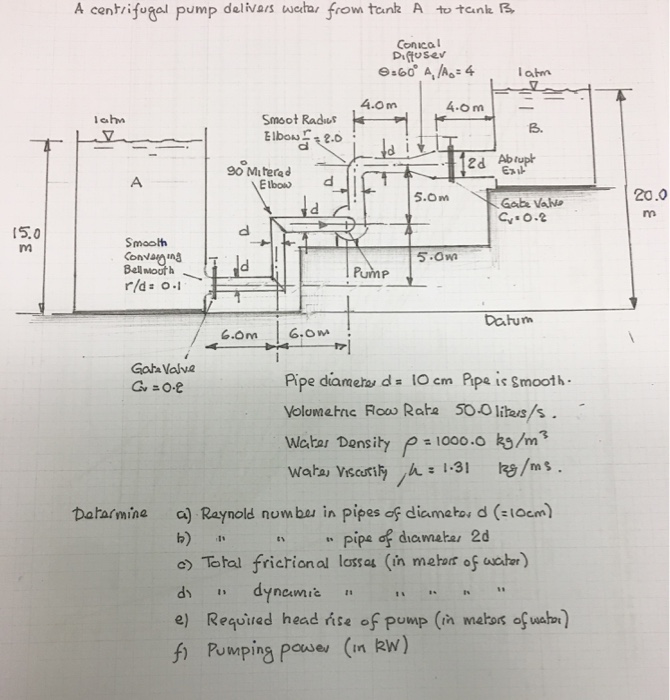 A centrifugal pump delivers water from tank A to tank B.
Conical
Diffuser
θ=60° A₁/A₀=4
1 atm
1 atm
Smoot Radius
Elbow r/d = 2.0
4.0m
4.0m
B.
d
2d
Abrupt
Exit
90° Mitered
Elbow
A
d
d
d
5.0m
Gate Valve
Cv=0.2
20.0
m
15.0
m
Smooth
Converging
Bellmouth
r/d = 0.1
d
d
Pump
5.0m
Datum
6.0m
6.0m
Gate Valve
Pipe diameter d = 10 cm Pipe is Smooth.
Volumetric Flow Rate 50.0 liters/s.
Water Density ρ = 1000.0 kg/m³
Water Viscosity, μ = 1.31 kg/ms.
Determine a) Raynold number in pipes of diameter d (=10cm)
b) " " " pipe of diameter 2d
c) Total frictional losses (in meters of water)
d) " dynamic " " " " "
e) Required head rise of pump (in meters of water)
f) Pumping power (in kW)